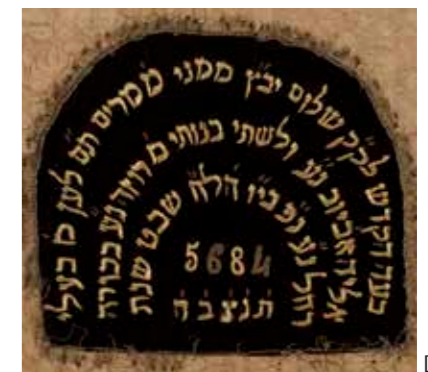 הקדש לק״ק שלום יב״ץ ממני ממרים תם לע״ן מ בעלי
אליה אביוב נ״ע ולשתי בנותי מ רוזה נ״ע בכורה
רחל נ״ע נפ כ״ו שבט שנת
5684
ת נ צ ב ה